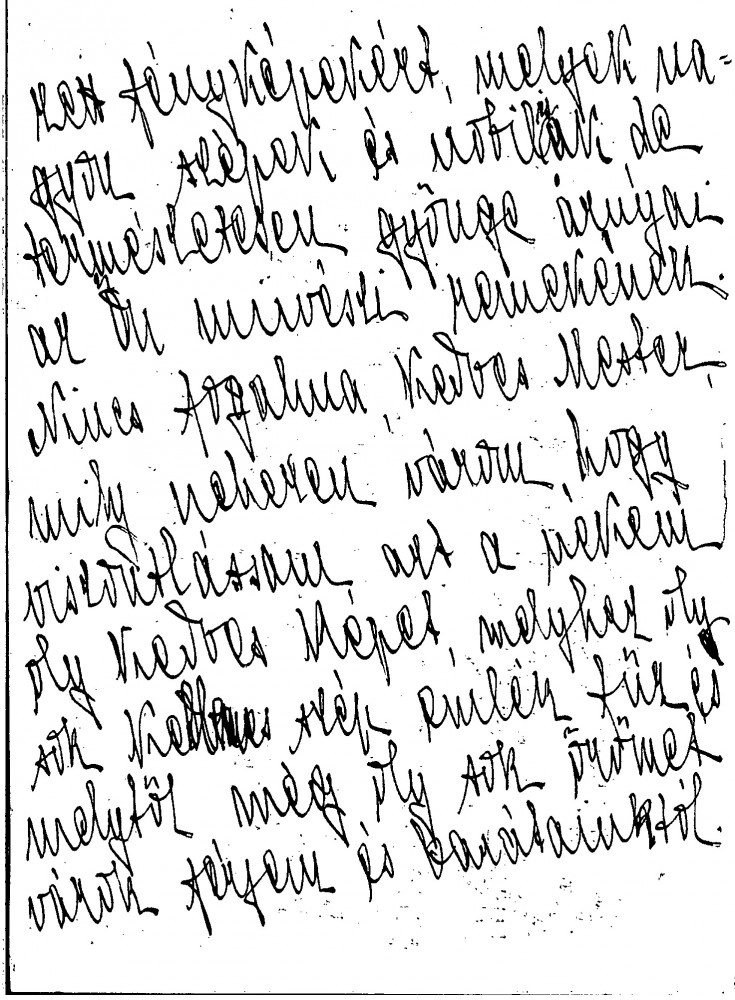 zett fényképekért, melyek na=
gyon szépek és nobilisak de
természetesen gyönge árnyai
az Ön müvészi remekének.
Nincs fogalma, Kedves Mester,
mily nehezen várom, hogy
viszontlássam azt a nekem
oly kedves képet, melyhez oly
sok szép emlék füz és
melytöl még oly sok örömet
várok férjem és barátainktól.